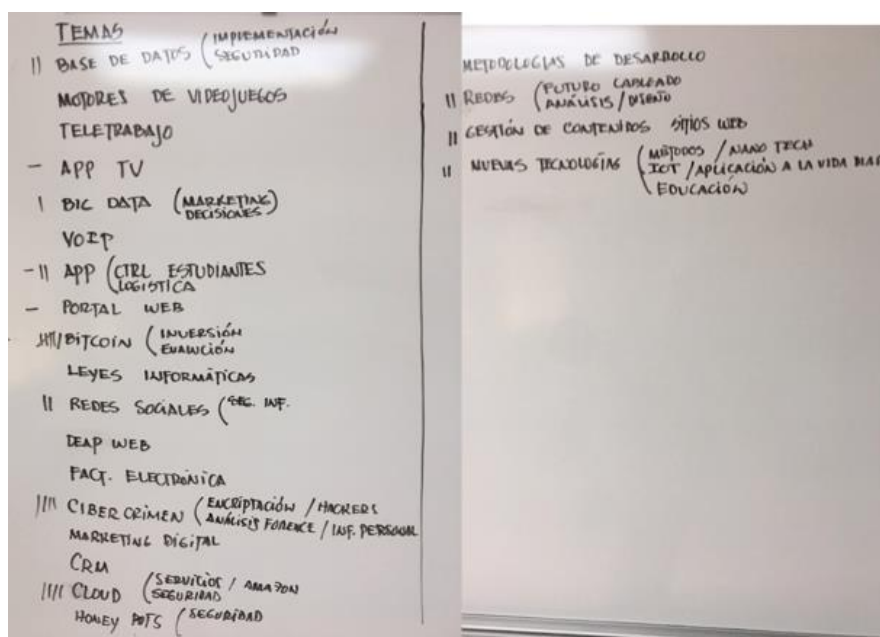 TEMAS
|| BASE DE DATOS ( IMPLEMENTACIÓN
SEGURIDAD
MOTORES DE VIDEOJUEGOS
TELETRABAJO
– APP TV
| BIG DATA (MARKETING
DECISIONES)
VOIP
–|| APP ( CTRL ESTUDIANTES
LOGISTICA
– PORTAL WEB
BITCOIN ( INVERSIÓN
LEYES INFORMÁTICAS
|| REDES SOCIALES ( SEG. INF.
DEAP WEB
FACT. ELECTRÓNICA
|||| CIBER CRIMEN ( ENCRIPTACIÓN / HACKERS
ANÁLISIS FORENCE / INF. PERSONAL
MARKETING DIGITAL
CRM
|||| CLOUD ( SERVICIOS / AMAZON
SEGURIDAD
HONEY POTS ( SEGURIDAD
METODOLOGIAS DE DESARROLLO
|| REDES ( FUTURO CABLEADO
ANÁLISIS / DISEÑO
|| GESTIÓN DE CONTENIDOS SITIOS WEB
|| NUEVAS TECNOLOGÍAS ( MÉTODOS / NANO TECH
IOT / APLICACIÓN A LA VIDA
EDUCACIÓN